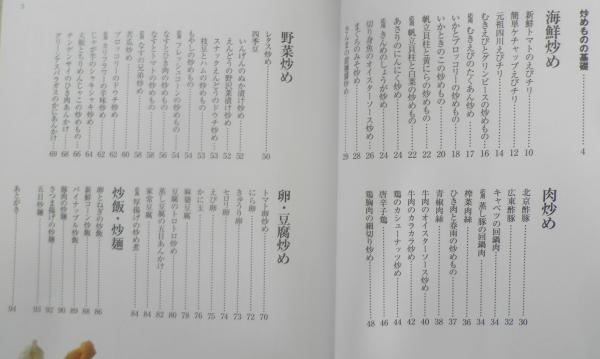 炒めものの基礎 4
海鮮炒め
新鮮トマトのえびチリ 10
簡単ケチャップえびチリ 12
元祖四川えびチリ 14
むきえびとグリンピースの炒めもの 16
応用 むきえびのたくあん炒め 17
いかとブロッコリーの炒めもの 18
いかときのこの炒めもの 20
帆立貝柱と黄にらの炒めもの 22
応用 帆立貝柱と白菜の炒めもの 22
あさりのにんにく炒め 24
応用 きんめのしょうが炒め 24
切り身魚のオイスターソース炒め 26
まぐろのみそ炒め 28
29
肉炒め
北京酢豚 30
広東酢豚 32
キャベツの回鍋肉 34
応用 蒸し豚の回鍋肉 34
榨菜肉絲 36
ひき肉と春雨の炒めもの 37
青椒肉絲 38
牛肉のオイスターソース炒め 40
牛肉のカラカラ炒め 42
鶏のカシューナッツ炒め 44
唐辛子鶏 46
鶏胸肉の細切り炒め 48
野菜炒め
レタス炒め 50
四季豆
いんげんのぬか漬け炒め 52
えんどうの野沢菜漬け炒め 52
スナックえんどうのドウチ炒め 53
枝豆とハムの炒めもの 53
応用 フレッシュコーンの炒めもの 54
もやしの炒めもの 54
なすとひき肉の炒めもの 56
なすとトマトの炒めもの 58
応用 なすの兄弟炒め 58
苦瓜炒め 60
ブロッコリーのドウチ炒め 62
応用 カリフラワーの辛味炒め 62
じゃが芋のシャキシャキ炒め 64
大根とちりめんじゃこの炒めもの 66
チンゲンサイのひき肉あんかけ 68
グリーンアスパラガスのかにあんかけ 69
卵・豆腐炒め
トマト卵炒め 70
にら卵 72
きゅうり卵 73
セロリ卵 74
えび卵 75
かに玉 76
麻婆豆腐 78
豆腐のトロトロ炒め 80
蒸し豆腐の五目あんかけ 82
家常豆腐 84
応用 厚揚げの炒め煮 84
炒飯・炒麺
卵とねぎの炒飯 86
新鮮コーン炒飯 88
パイナップル炒飯 89
豚肉の炒麺 90
さつま揚げの炒麺 92
五目炒麺 93
あとがき 94
3